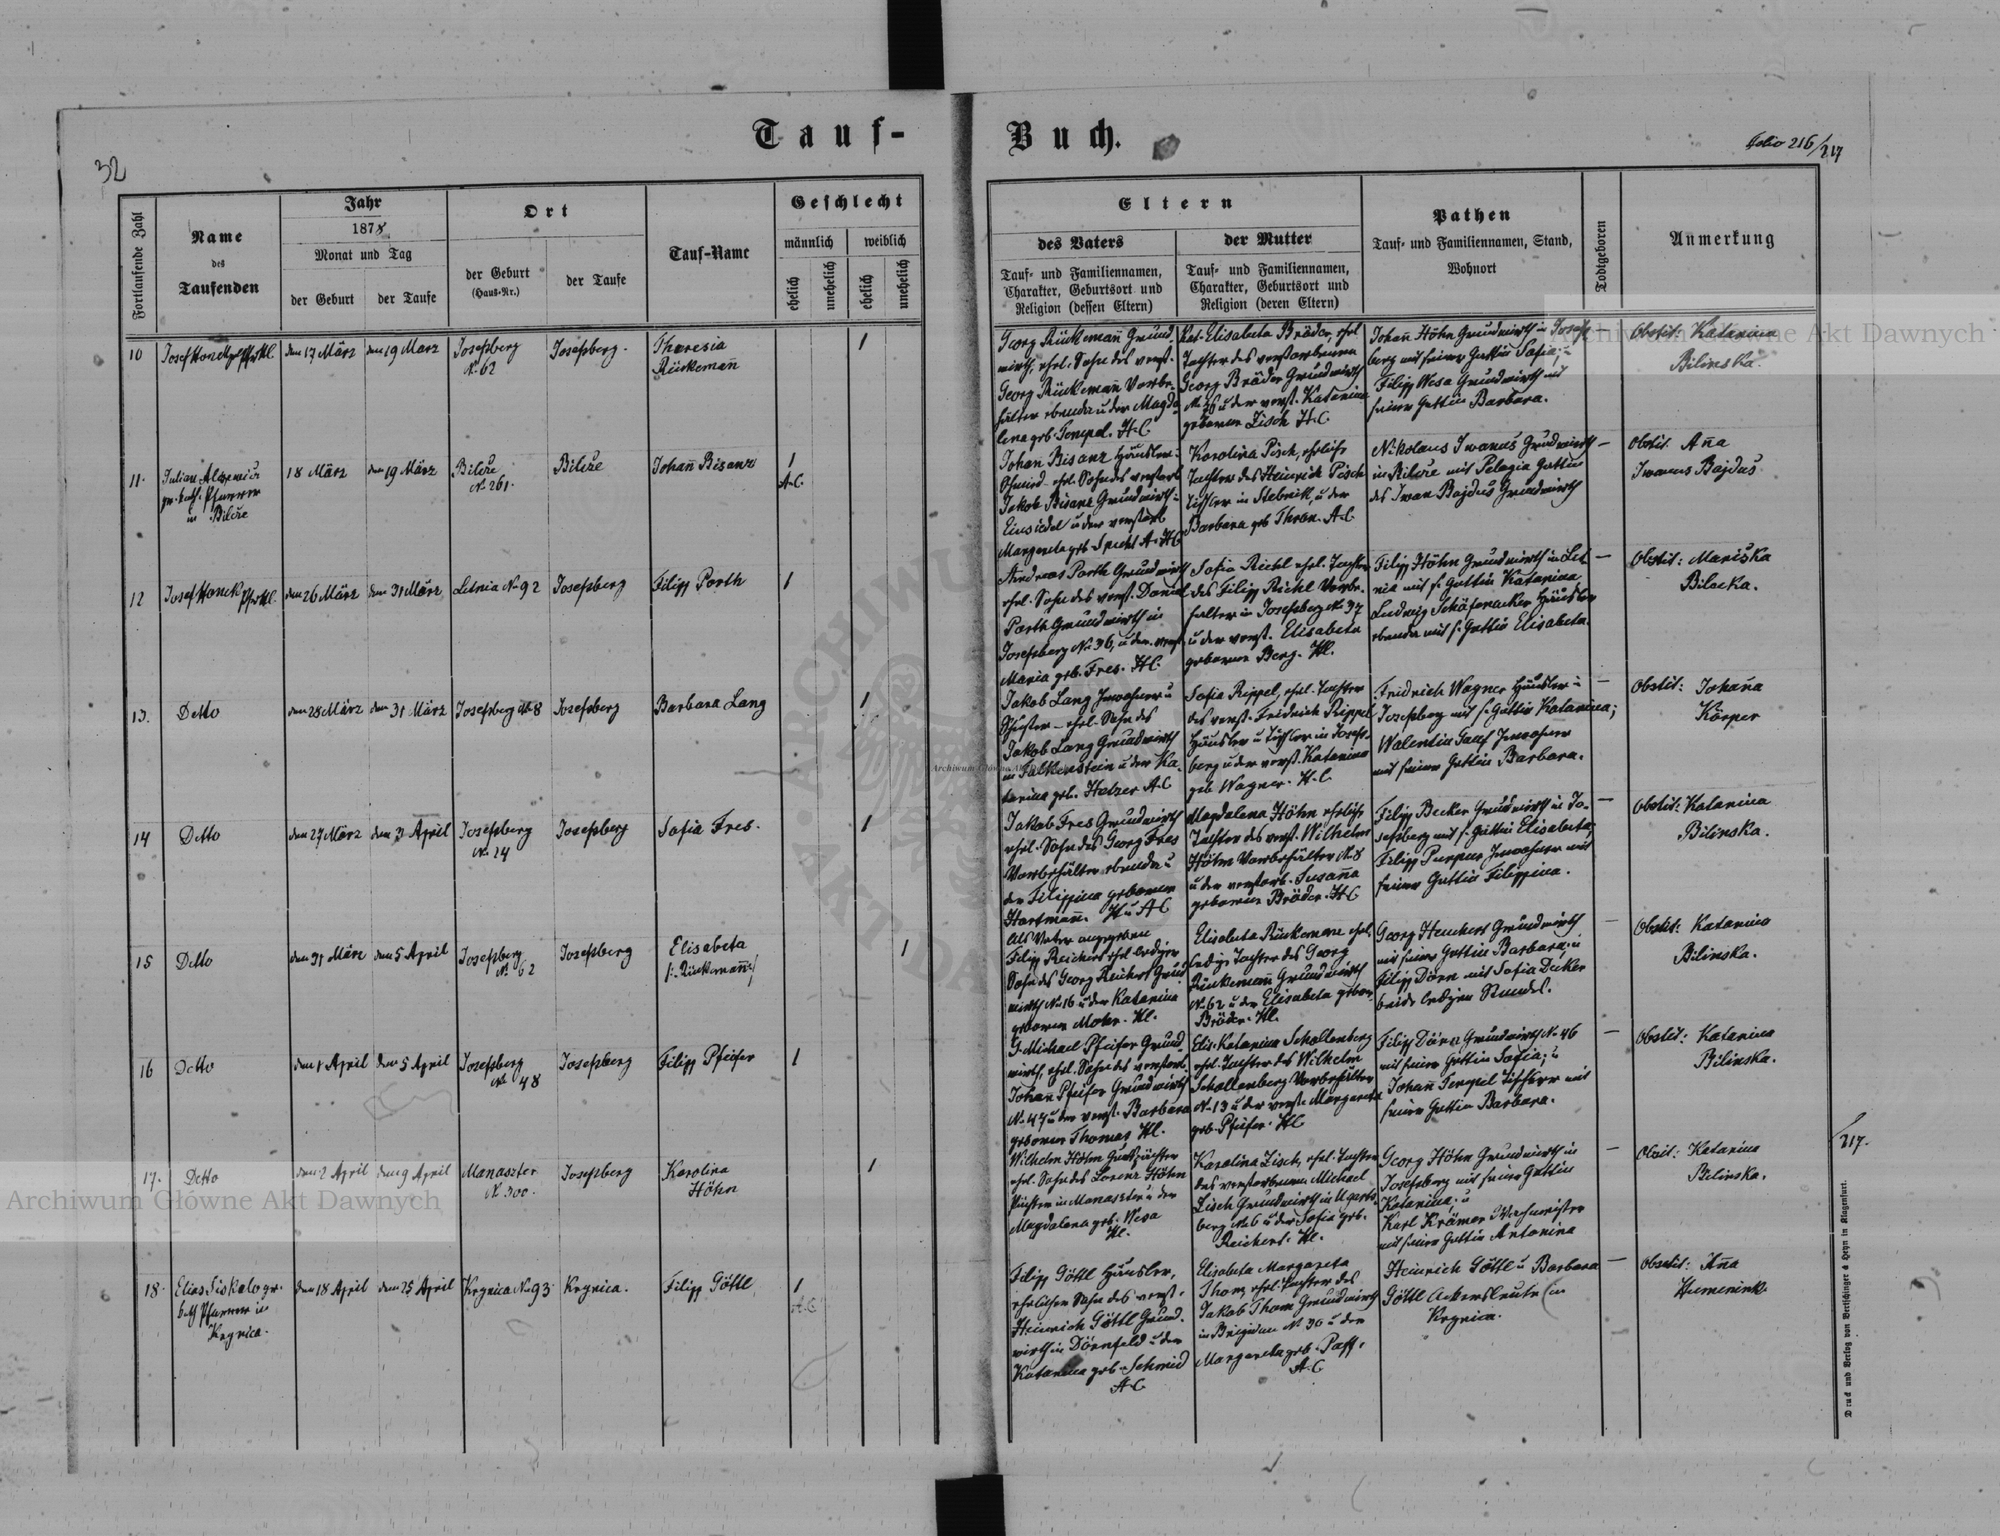 Tauf-
Buch.
32
Folio 216/217
Fortlaufende Zahl
Name
des
Taufenden
Jahr
1878
Monat und Tag
der Geburt
der Taufe
Ort
der Geburt
(Haus-Nr.)
der Taufe
Tauf-Name
Geschlecht
männlich
weiblich
ehelich
unehelich
ehelich
unehelich
Eltern
des Vaters
Tauf- und Familiennamen,
Charakter, Geburtsort und
Religion (dessen Eltern)
der Mutter
Tauf- und Familiennamen,
Charakter, Geburtsort und
Religion (deren Eltern)
Pathen
Tauf- und Familiennamen, Stand,
Wohnort
Todtgeboren
Anmerkung
10
den 17 März
den 19 März
Josefsberg
N. 62
Josefsberg.
Theresia
Rückemañ
1
Georg Rückemañ Grund
wirth, ehel. Sohn des verst.
Georg Rückemañ Vorbe-
hälter ebenda u der Magda
lena geb. Tempel. H.C.
Kat. Elisabeta Bräder, ehel
Tochter des verstorbenen
Georg Bräder Grundwirth
u der verst. Katarina
geborene Zisch H.C.
Johañ Höhn Grundwirth in Josefs
berg mit seiner Gattin Sofia;
Filipp Wesa Grundwirth mit
seiner Gattin Barbara.
Obstit: Katarina
Bilinska.
11.
gr. kath. Pfarrer
in Bilcze
18 März
den 19 März
Bilcze
N. 261.
Bilcze
Johañ Bisanz
1
A.C.
Johañ Bisanz Häusler
Schmied ehel. Sohn des verstorb
Jakob Bisanz Grundwirth
Einsiedel u der verstorb
Margareta geb. Specht A. H.C
Karolina Pisch, eheliche
Tochter des Heinrich Pisch
Tischler in Stebnik, u der
Barbara geb Thron. A.C.
Nikolaus Iwanus Grundwirth —
in Bilcze mit Pelagia Gattin
des Iwan Bajdus Grundwirth
Obstit. Aña
Iwanus Bajdus
12
Josef Honek
den 26 März
den 31 März
Letnia No 92
Josefsberg
Filipp Porth
1
Andreas Porth Grundwirth
ehel. Sohn des verst. Daniel
Porth Grundwirth in
Josefsberg No 36, u der verst.
Maria geb. Fres. H.C.
Sofia Richl ehel. Tochter
des Filipp Richl Vorbe-
halter in Josefsberg No 37
u der verst. Elisabeta
geborene Berg. Hl.
Filipp Höhn Grundwirth in Let —
nia mit s. Gattin Katarina
Ludwig Schäfenacker Häusler
ebenda mit s. Gattin Elisabeta.
Obstit: Mariška
Bilecka.
13.
Detto
den 28 März
den 31 März
Josefsberg No 8
Josefsberg
Barbara Lang
1
Jakob Lang Inwohner u
Schuster – ehel. Sohn des
Jakob Lang Grundwirth
in Falkenstein u der Ka-
tarina geb. Hetzer A.C
Sofia Rippel, ehel. Tochter
des verst. Fridrich Rippel
Häusler u Tischler in Josefs-
berg u der verst. Katarina
geb Wagner. H.C.
Fridrich Wagner Häusler in —
Josefsberg mit s. Gattin Katarina;
Walentin Inwohner
mit seiner Gattin Barbara.
Obstit: Johaña
Körper
14
Detto
den 27 März
den 31 April
Josefsberg
No. 24
Josefsberg
Sofia Fres.
1
Jakob Fres Grundwirth
ehel. Sohn des Georg Fres
Vorbehälter ebenda u
der Filippina geborene
Hartmañ. H u A C
Magdalena Höhn eheliche
Tochter des verst. Wilhelm
Höhn Vorbehälter No 8
u der verstorb. Susaña
geborene Bräder. H.C
Filipp Becker Grundwirth in Jo- —
sefsberg mit s. Gattin Elisabeta;
Filipp Purpus Inwohner mit
seiner Gattin Filippina.
Obstit: Katarina
Bilinska.
15
Detto
den 31 März
den 5 April
Josefsberg
N. 62
Josefsberg
Elisabeta
/: Rückemañ :/
1
Als Vater angegeben
Filipp Reichert ehel. lediger
Sohn des Georg Reichert Grund
wirth No 16 u der Katarina
geborene Moker. Hl.
Elisabeta Rückemann ehel.
ledige Tochter des Georg
Rückemañ Grundwirth
No 62 u der Elisabeta gebor.
Bräder. Hl.
Georg Heuchert Grundwirth —
mit seiner Gattin Barbara, u
Filipp Dörn mit Sofia Decker
beide ledigen Standes.
Obstit: Katarina
Bilinska.
16
Detto
den 1 April
den 5 April
Josefsberg
No. 48
Josefsberg
Filipp Pfeifer
1
G. Michael Pfeifer Grund
wirth, ehel. Sohn des verstorb.
Johañ Pfeifer Grundwirth
No. 47 u der verst. Barbara
geborene Thomas Hl.
Elis. Katarina Schollenberg
ehel. Tochter des Wilhelm
Schollenberg Vorbehälter
No 13 u der verst. Margareta
geb. Pfeifer. HC
Filipp Dörn Grundwirth No 46 —
mit seiner Gattin Sofia; u
Johañ Tempel Tischler mit
seiner Gattin Barbara.
Obstit: Katarina
Bilinska.
17.
Detto
den 2 April
den 9 April
Manaszter
No 300.
Josefsberg
Karolina
Höhn
1
Wilhelm Höhn Gutspächter
ehel. Sohn des Lorenz Höhn
Pächter in Manaszter u der
Magdalena geb. Wesa
Hl.
Karolina Zisch, ehel. Tochter
des verstorbenen Michael
Zisch Grundwirth in Ugarts-
berg No 6 u der Sofia geb.
Reichert. Hl.
Georg Höhn Grundwirth in —
Josefsberg mit seiner Gattin
Katarina; u
Karl Krämer Wachmeister
mit seiner Gattin Antonina
Obstit: Katarina
Bilinska.
217.
18.
Elias Fiskalo gr.
kath Pfarrer in
Krynica.
den 18 April
den 25 April
Krynica No 93.
Krynica.
Filipp Göttl
1
A.C.
Filipp Göttl Häusler,
ehelicher Sohn des verst.
Heinrich Göttl Grund-
wirth in Dornfeld u der
Katarina geb. Schmid
A.C
Elisabeta Margareta
Thom, ehel. Tochter des
Jakob Thom Grundwirth
in Brigidau No 30 u der
Margareta geb. Paff.
A.C
Heinrich Göttl u Barbara —
Göttl Ackersleute in
Krynica.
Obstit: Aña
Humeniuk
Druck und Verlag von Bertschinger & Heyn in Klagenfurt.
Archiwum Główne Akt Dawnych
Archiwum Główne Akt Dawnych